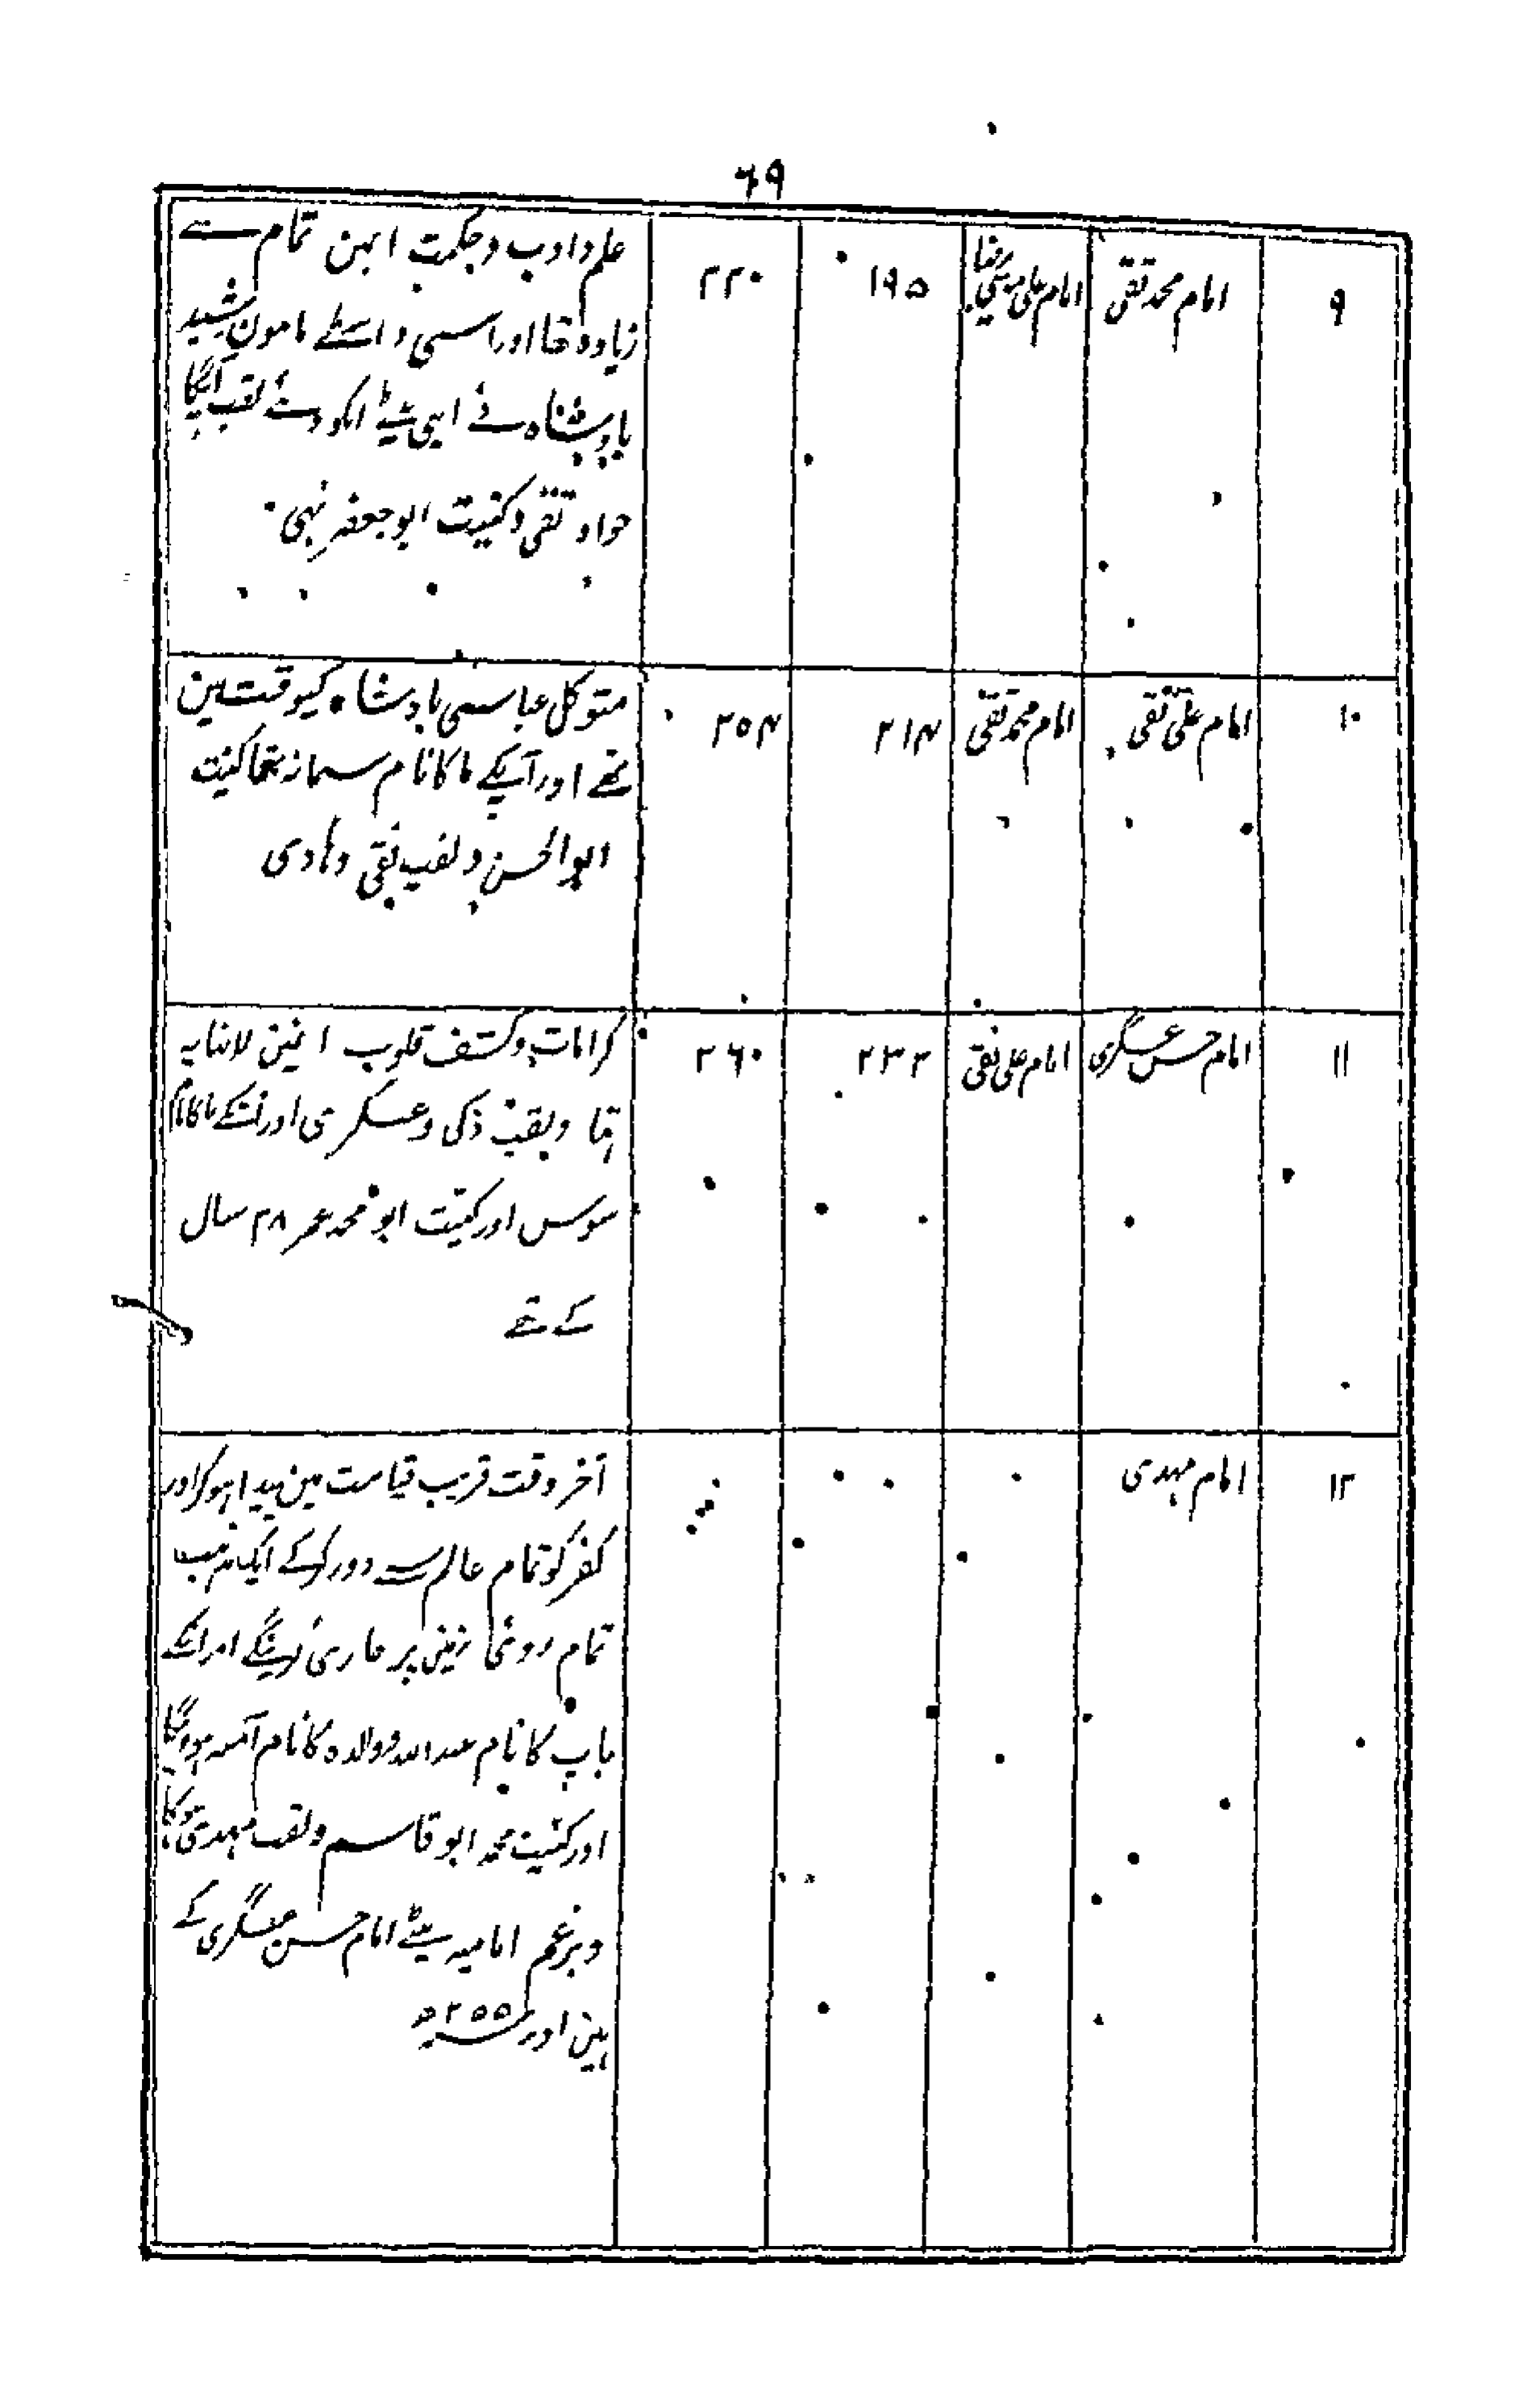 ۶۹
۹
امام محمد تقی
امام علی موسیٰ رضا
۱۹۵
۲۲۰
علم و ادب و حکمت انہن تمام سے
زیادہ تھا اور اسی واسطے مامون رشید
بادشاہ نے اپنی بیٹے انکو دئے لقب آپکا
جواد تقی و کنیت ابو جعفر تہی
۱۰
امام علی نقی
امام محمد تقی
۲۱۴
۲۵۴
متوکل عباسی بادشاہ کیوقت مین
تھے اور آپکے ما کا نام سمانہ تھا کنیت
ابو الحسن و لقب نقی و ہادی
۱۱
امام حسن عسکری
امام علی نقی
۲۳۲
۲۶۰
کرامات و کشف قلوب انمین لانہایہ
تھا و لقب ذکی و عسکری اور انکے ما کا نام
سوس اور کنیت ابو محمد عمر ۲۸ سال
کے تھے
۱۲
امام مہدی
آخر وقت قریب قیامت مین پیدا ہوکر اور
کفر کو تمام عالم سے دور کرکے ایک مذہب
تمام روئے زمین پر جاری کرینگے اور انکے
باپ کا نام عبد اللہ و والدہ کا نام آمنہ ہوویگا
اور کنیت محمد ابو قاسم و لقب مہدی ہوگا
و بزعم امامیہ بیٹے امام حسن عسکری کے
ہین اور سنہ ۲۵۵ ہ